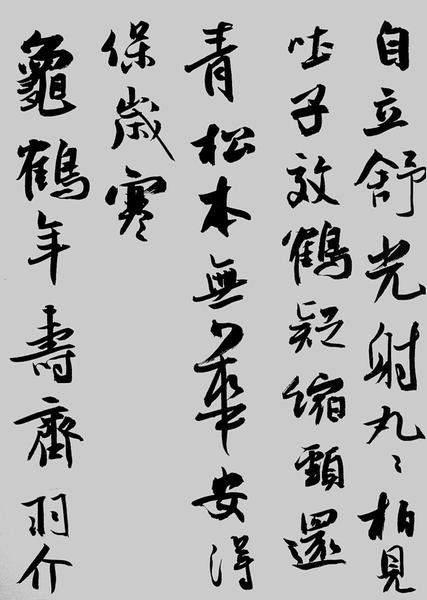 自立舒光射丸〻柏見
吐子效鶴疑縮頸還
青松本無華安得
保歲寒
龜鶴年壽齊羽介